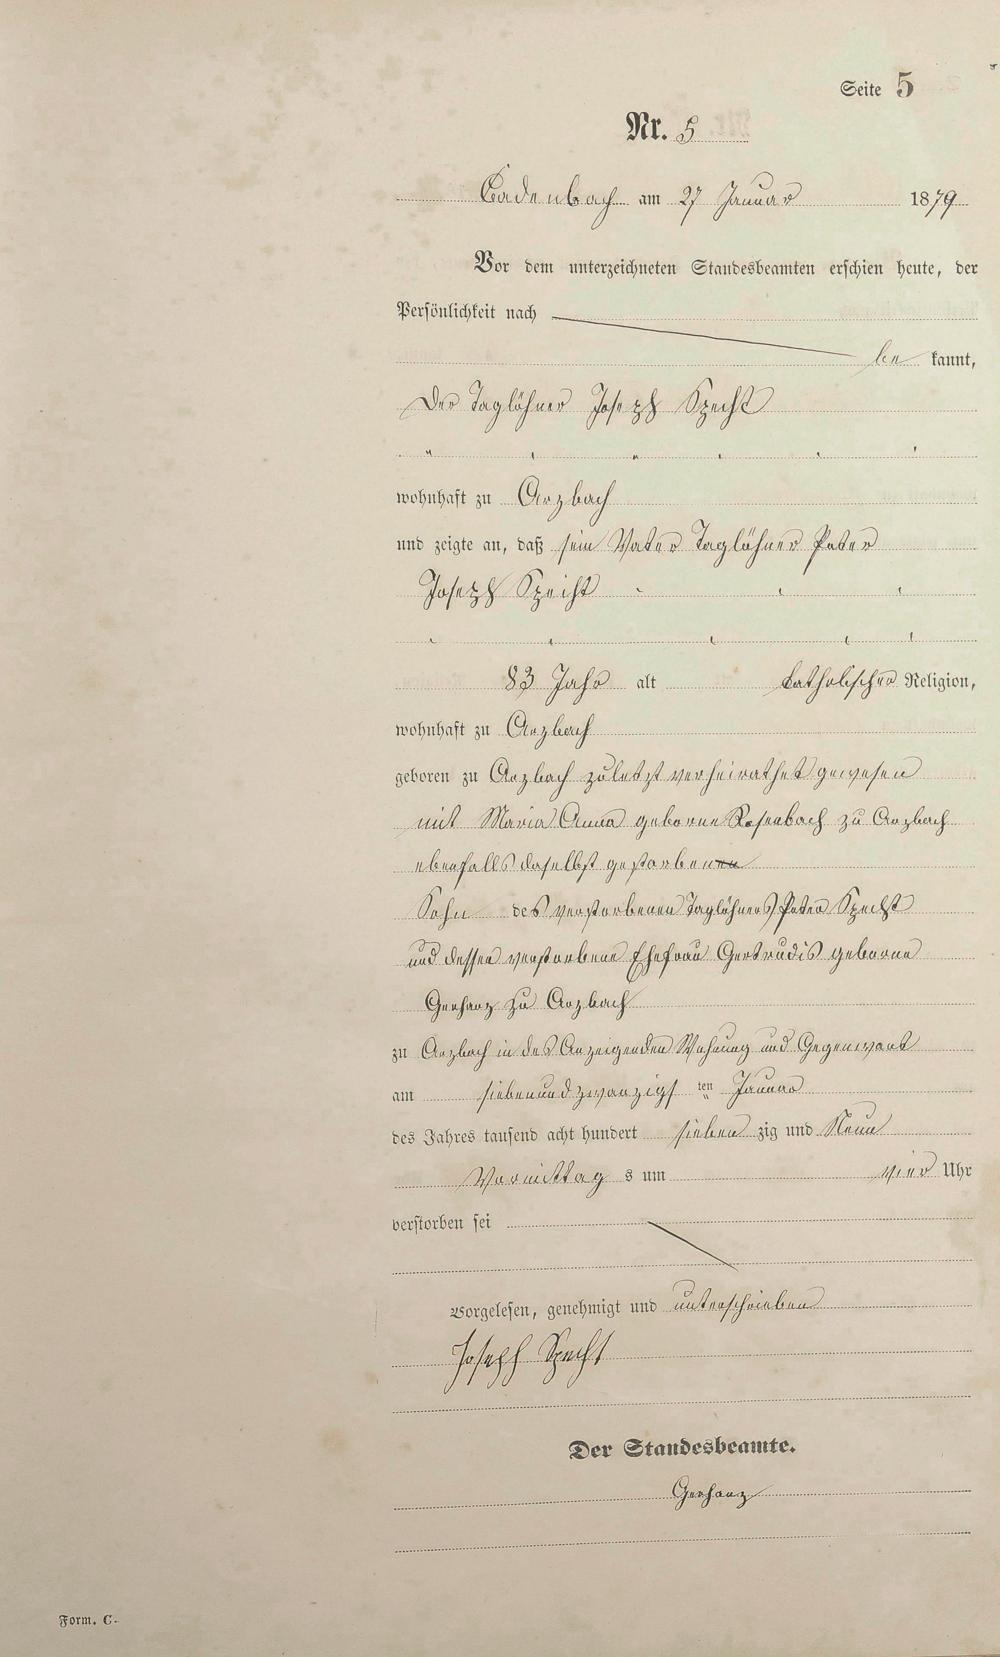 Seite 5
Nr. 5
Cadenbach am 27 Januar 1879
Vor dem unterzeichneten Standesbeamten erschien heute, der
Persönlichkeit nach
be kannt,
Der Taglöhner Joseph Specht
wohnhaft zu Arzbach
und zeigte an, daß sein Vater Taglöhner Peter
Joseph Specht
83 Jahr alt katholischer Religion,
wohnhaft zu Arzbach
geboren zu Arzbach zuletzt verheirathet gewesen
mit Maria Anna geborne Rosenbach zu Arzbach
ebenfalls daselbst gestorbenen
Sohn des verstorbenen Taglöhners Peter Specht
und dessen verstorbene Ehefrau Gertrudis geborne
Gerharz zu Arzbach
zu Arzbach in des Anzeigenden Wohnung und Gegenwart
am siebenundzwanzigs ten Januar
des Jahres tausend acht hundert sieben zig und Neun
Vormittag s um vier Uhr
verstorben sei
Vorgelesen, genehmigt und unterschrieben
Joseph Specht
Der Standesbeamte.
Gerharz
Form. C.